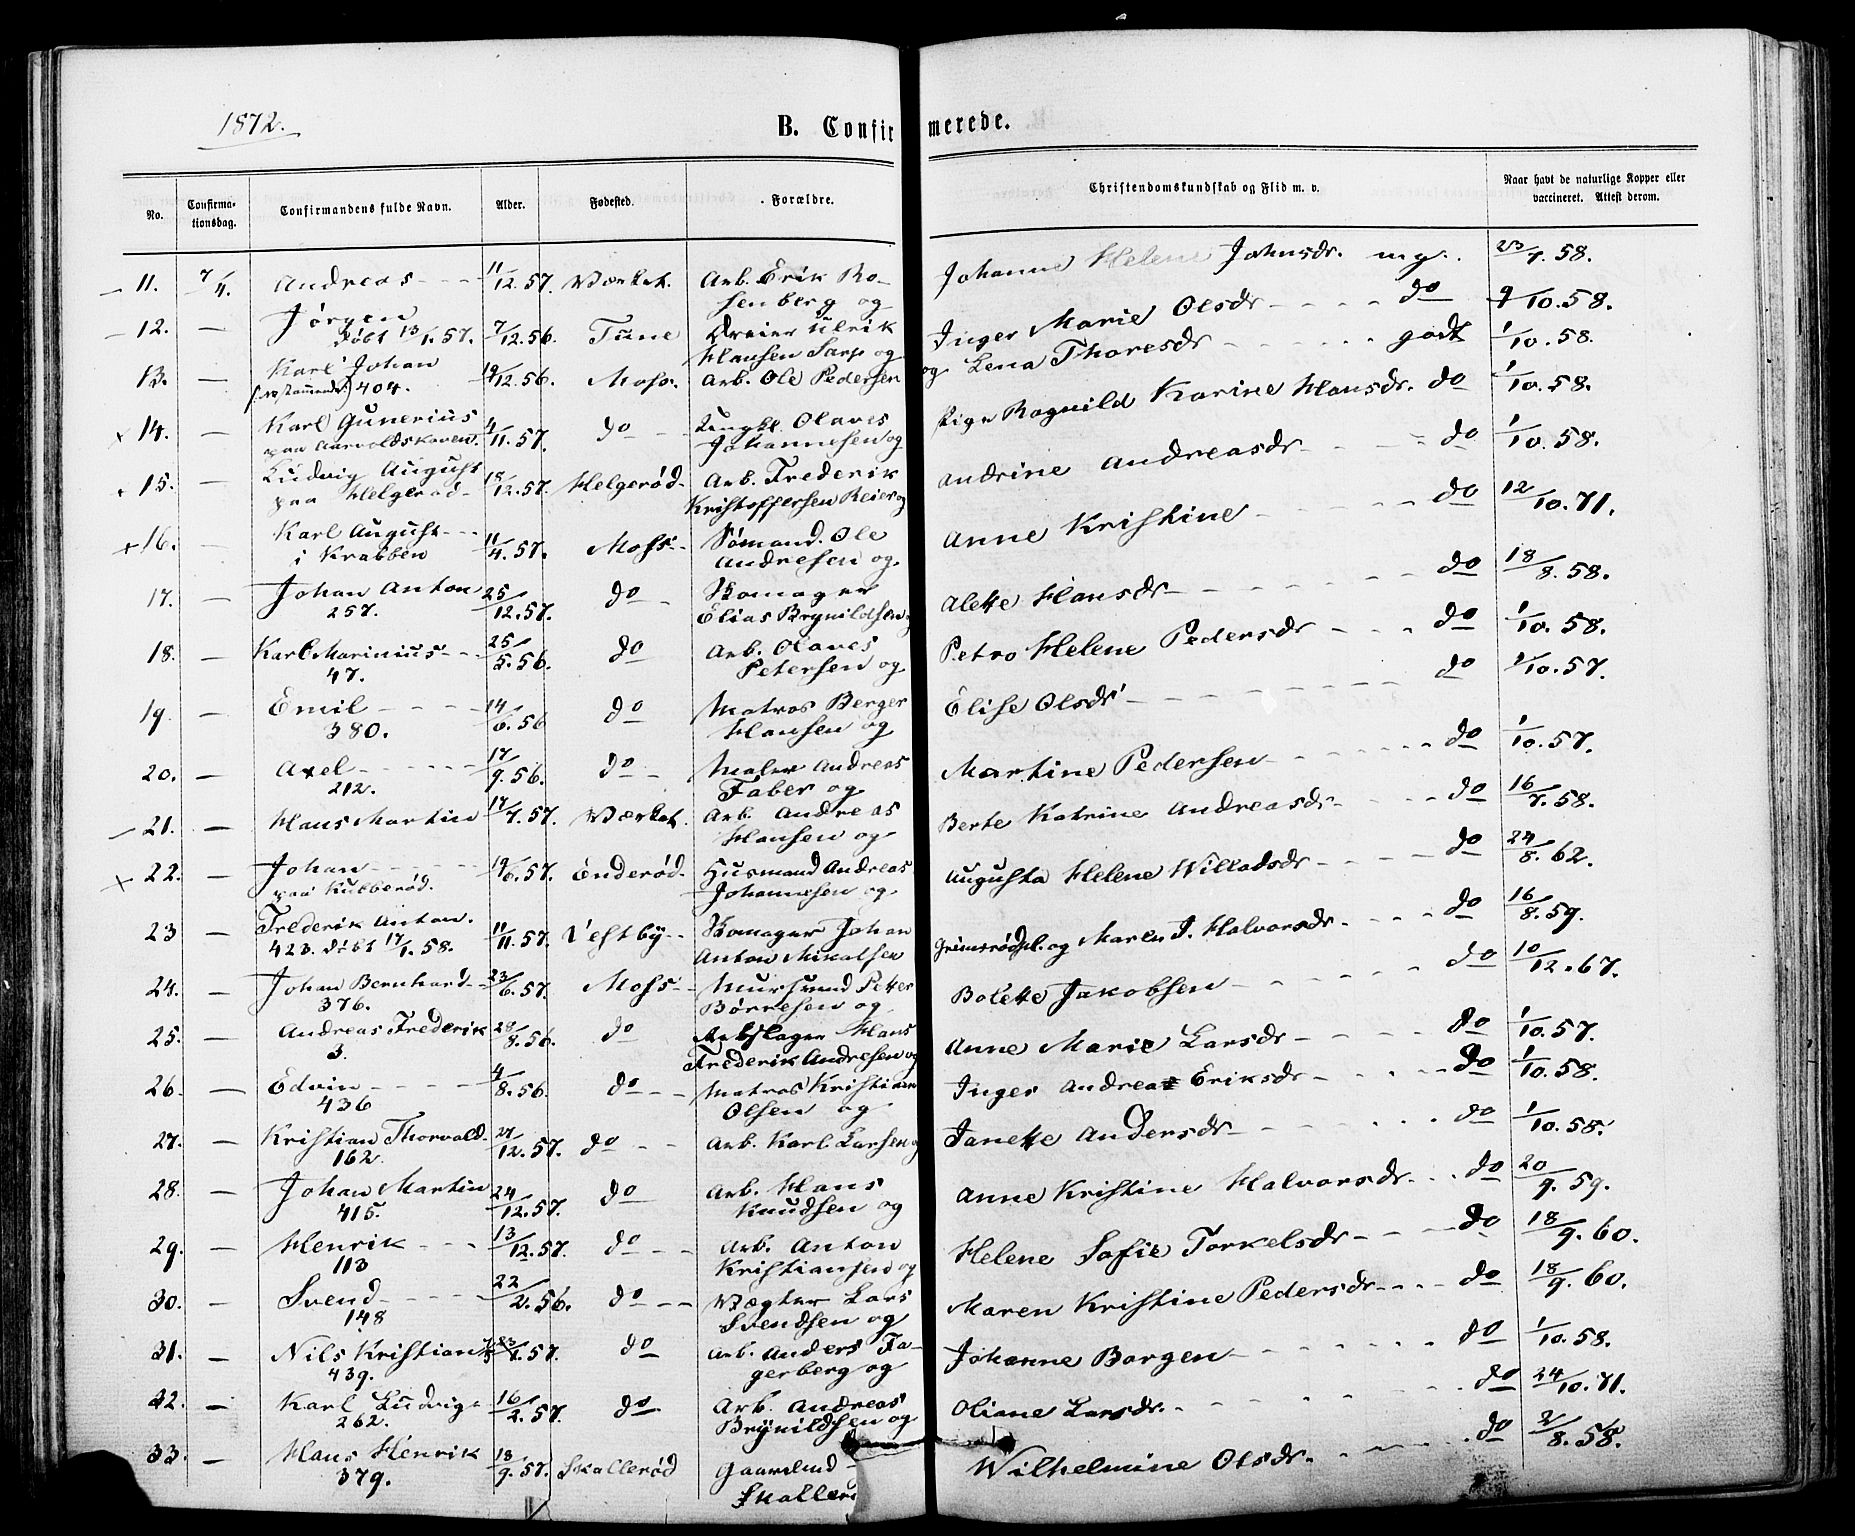 1872.
B. Confirmerede.
No. Confirma-tionsdag. Confirmandens fulde Navn. Alder. Fødested. Forældre. Christendomskundskab og Flid m. v. Naar havt de naturlige Kopper eller vaccineret. Attest derom.
11. 7/4. Andreas 11/12.57. Værket. Arb. Erik Ro-
senberg og Johanne Helene Johnsdr. mg. 23/7.58.
12. — Jørgen 7/12.56. Tune Dreier Ulrik
Døbt 13/1.57. Hansen Sarp og Inger Marie Olsdr do 9/10.58.
13. — Karl Johan 19/12.56. Moss. Arb. Ole Pedersen og Lena Thoresdr godt 1/10.58.
404.
x 14. — Karl Gunerius 4/11.57. do Olaves
paa Aarvoldskoven. Johannesen og Pige Ragnild Karine Hansdr. do 1/10.58.
15. — Ludvig August 18/12.57. Helgerød Arb. Frederik
paa Helgerød Kristoffersen Reier og Andrine Andreasdr do 1/10.58.
x 16. — Karl August 11/4.57. Moss Sømand. Ole
i Krabben Andresen og Anne Kristine do 12/10.71.
17. — Johan Anton 25/12.57. do Skomager
257. Elias Brynildsen Alette Hansdr do 18/8.58.
18. — Karl Marinius 25/5.56. do Arb. Olaves
47. Petersen og Petra Helene Pedersdr do 1/10.58.
19. — Emil 14/6.56 do Matros Berger
380. Hansen og Elise Olsdr do 1/10.57.
20. — Axel 17/9.56. do Maler Andreas
212. Faber og Martine Pedersen do 1/10.57.
21. — Hans Martin 17/7.57. Værket. Arb. Andreas
Hansen og Berte Katrine Andreasdr do 16/7.58.
x 22. — Johan 19/6.57. Enderød. Husmand Andreas
paa Kulberød. Johannesen og Augusta Helene Willadsdr do 24/8.62.
23 — Frederik Anton. 11/11.57. Vestby Skomager Johan
423. Døbt 17/1.58. Anton Mikalsen Grimsrødpl. og Maren J. Halvorsdr do 16/8.59.
24. — Johan Bernhard 23/6.57. Moss Muursvend Petter
376. Børresen og Bolette Jakobsen do 10/12.67.
25. — Andreas Frederik 28/8.56. do Rebslager Hans
3. Frederik Andresen og Anne Marie Larsdr do 1/10.57.
26. — Edvin 4/8.56. do Matros Kristian
436 Olsen og Inger Andrea Eriksdr do 1/10.58.
27. — Kristian Thorvald 27/12.57. do Arb. Karl Larsen og Janette Andersdr do 1/10.58.
162.
28. — Johan Martin 24/12.57. do Arb. Hans
415. Knudsen og Anne Kristine Halvorsdr do 20/9.59.
29. — Henrik 13/12.57. do Arb. Anton
113 Kristiansen og Helene Sofie Torkelsdr do 18/9.60.
30. — Svend 22/2.56. do Vægter Lars
148 Svendsen og Maren Kristine Pedersdr do 18/9.60.
31. — Nils Kristian .57. do Arb. Anders Fa-
439. gerberg og Johanne Borgen do 1/10.58.
32. — Karl Ludvig 16/2.57. do Arb. Andreas
262. Brynildsen og Oliane Larsdr. do 24/10.71.
33. — Hans Henrik 18/9.57. Skallerød Gaardmd
379. Skaller Wilhelmine Olsdr. do 2/8.58.